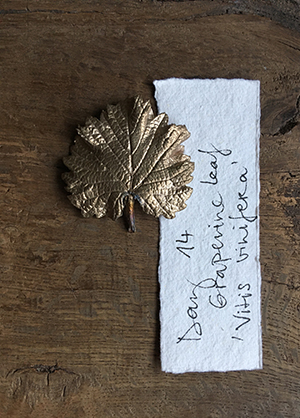 Day 14
Grapevine leaf
'Vitis vinifera'